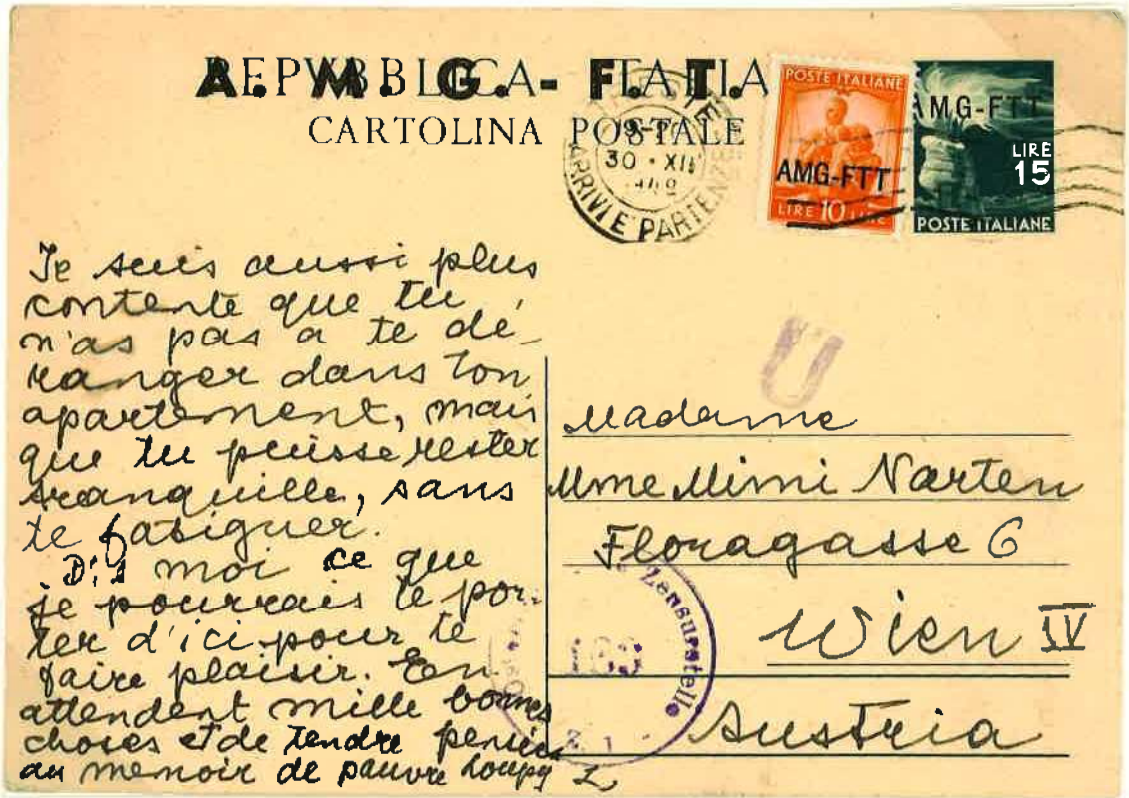 REPVBBLICA ITALIANA
A. M. G. - F. T. T.
CARTOLINA POSTALE
TRIESTE
30 · XII
ARRIVI E PARTENZE
POSTE ITALIANE
AMG-FTT
LIRE 10 LIRE
AMG-FTT
LIRE
15
POSTE ITALIANE
Je suis aussi plus
contente que tu
n'as pas a te dé-
ranger dans ton
apartement, mais
que tu puisse rester
tranquille, sans
te fatiguer.
Dis moi ce que
je pourrais te por-
ter d'ici pour te
faire plaisir. En
attendent mille bonnes
choses et de tendre pensées
au memoir de pauvre Loupy L
U
Madame
Mme Mimi Narten
Floragasse 6
Wien IV
Austria
Zensurstelle
183